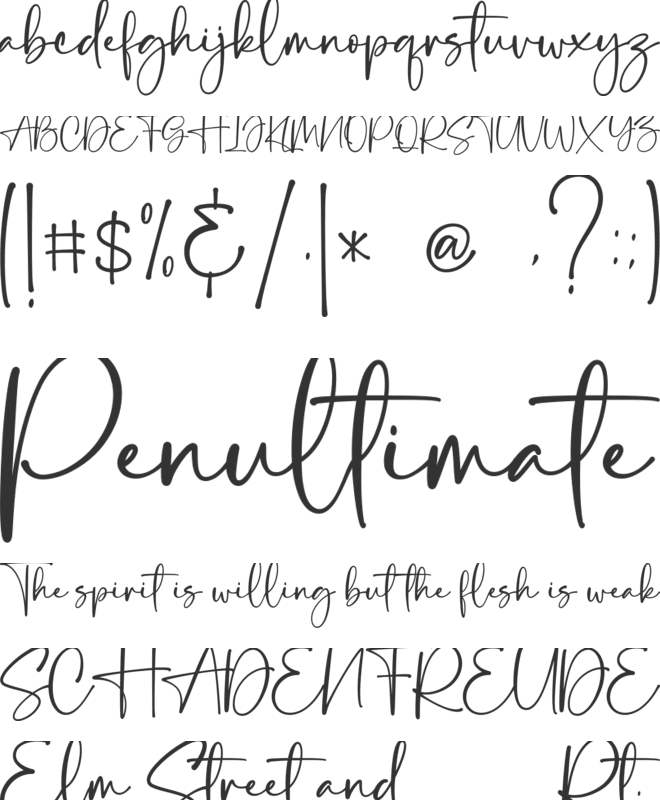 abcdefghijklmnopqrstuvwxyz
ABCDEFGHIJKLMNOPQRSTUVWXYZ
(!#$%&/.|* @ ,?:;)
Penultimate
The spirit is willing but the flesh is weak
SCHADENFREUDE
Elm Street and Pt.